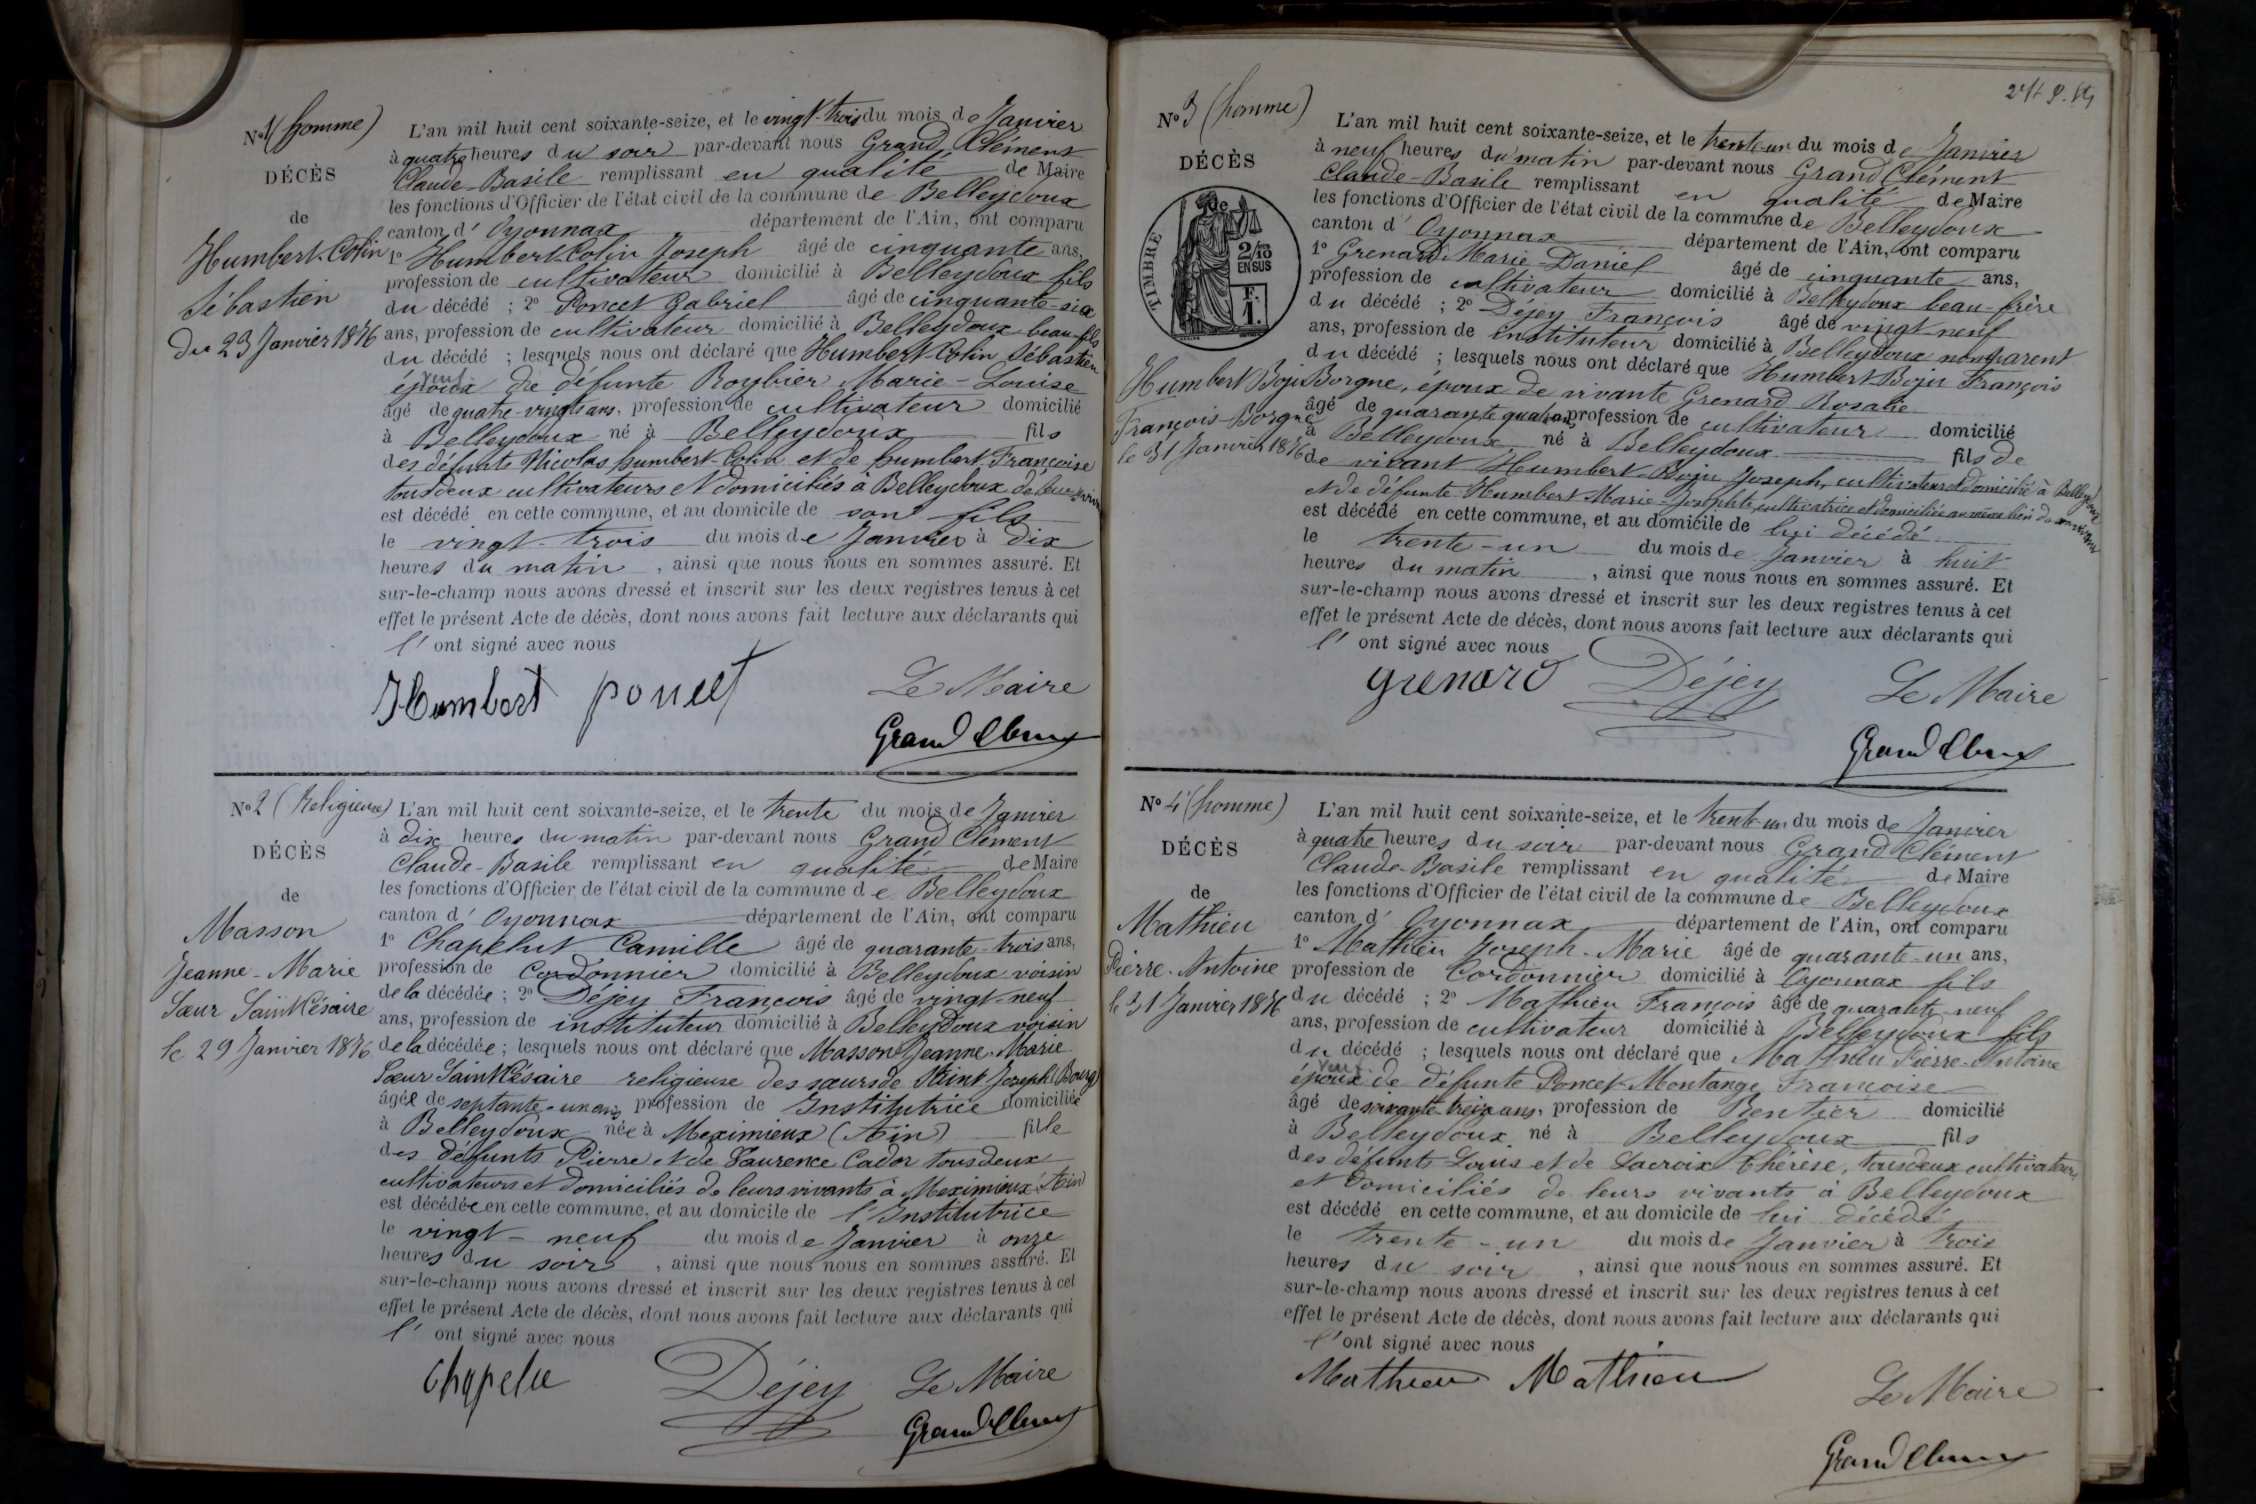 N° 1 (homme)
DÉCÈS
de
Humbert-Colin
Sébastien
Du 23 Janvier 1876
L'an mil huit cent soixante-seize, et le vingt-trois du mois de Janvier
à quatre heures du soir par-devant nous Grand Clément
Claude-Basile remplissant en qualité de Maire
les fonctions d'Officier de l'état civil de la commune de Belleydoux
canton d'Oyonnax département de l'Ain, ont comparu
1° Humbert-Colin Joseph âgé de cinquante ans,
profession de cultivateur domicilié à Belleydoux fils
du décédé ; 2° Poncet Gabriel âgé de cinquante-six
ans, profession de cultivateur domicilié à Belleydoux beau-fils
du décédé ; lesquels nous ont déclaré que Humbert-Colin Sébastien
veuf
époux de défunte Roybier Marie-Louise
âgé de quatre-vingts ans, profession de cultivateur domicilié
à Belleydoux né à Belleydoux fils
des défunts Nicolas humbert-Colin et de humbert Françoise
tous deux cultivateurs et domiciliés à Belleydoux de leur vivant
est décédé en cette commune, et au domicile de son fils
le vingt-trois du mois de Janvier à dix
heures du matin, ainsi que nous nous en sommes assuré. Et
sur-le-champ nous avons dressé et inscrit sur les deux registres tenus à cet
effet le présent Acte de décès, dont nous avons fait lecture aux déclarants qui
l'ont signé avec nous
Humbert poncet Le Maire
Grand Clément
N° 2 (Religieuse)
DÉCÈS
de
Masson
Jeanne-Marie
Sœur Saint Césaire
le 29 Janvier 1876
L'an mil huit cent soixante-seize, et le trente du mois de Janvier
à dix heures du matin par-devant nous Grand Clément
Claude-Basile remplissant en qualité de Maire
les fonctions d'Officier de l'état civil de la commune de Belleydoux
canton d'Oyonnax département de l'Ain, ont comparu
1° Chapelut Camille âgé de quarante-trois ans,
profession de Cordonnier domicilié à Belleydoux voisin
de la décédée ; 2° Déjey François âgé de vingt-neuf
ans, profession de instituteur domicilié à Belleydoux voisin
de la décédée ; lesquels nous ont déclaré que Masson Jeanne-Marie
Sœur Saint Césaire religieuse des sœurs de Saint Joseph (Bourg)
âgée de septante-un ans profession de Institutrice domiciliée
à Belleydoux née à Meximieux (Ain) fille
des défunts Pierre et de Laurence Cador tous deux
cultivateurs et domiciliés de leurs vivants à Meximieux (Ain)
est décédée en cette commune, et au domicile de l'Institutrice
le vingt-neuf du mois de Janvier à onze
heures du soir, ainsi que nous nous en sommes assuré. Et
sur-le-champ nous avons dressé et inscrit sur les deux registres tenus à cet
effet le présent Acte de décès, dont nous avons fait lecture aux déclarants qui
l'ont signé avec nous
Chapelu Déjey Le Maire
Grand Clément
N° 3 (homme)
DÉCÈS
de
TIMBRE
2/10
EN SUS
F.
1.
Humbert Boju
François-Borgne
le 31 Janvier 1876
L'an mil huit cent soixante-seize, et le trente-un du mois de Janvier
à neuf heures du matin par-devant nous Grand Clément
Claude-Basile remplissant en qualité de Maire
les fonctions d'Officier de l'état civil de la commune de Belleydoux
canton d'Oyonnax département de l'Ain, ont comparu
1° Grenard Marie-Daniel âgé de cinquante ans,
profession de cultivateur domicilié à Belleydoux beau-frère
du décédé ; 2° Déjey François âgé de vingt-neuf
ans, profession de instituteur domicilié à Belleydoux non parent
du décédé ; lesquels nous ont déclaré que Humbert Boju François
Borgne, époux de vivante Grenard Rosalie
âgé de quarante quatre ans profession de cultivateur domicilié
à Belleydoux né à Belleydoux fils de
de vivant Humbert-Boju Joseph, cultivateur et domicilié à Belleydoux
et de défunte Humbert Marie-Josephte cultivatrice et domiciliée au même lieu de son vivant
est décédé en cette commune, et au domicile de lui décédé
le trente-un du mois de Janvier à huit
heures du matin, ainsi que nous nous en sommes assuré. Et
sur-le-champ nous avons dressé et inscrit sur les deux registres tenus à cet
effet le présent Acte de décès, dont nous avons fait lecture aux déclarants qui
l'ont signé avec nous
Grenard Déjey Le Maire
Grand Clément
N° 4 (homme)
DÉCÈS
de
Mathieu
Pierre-Antoine
le 31 Janvier 1876
L'an mil huit cent soixante-seize, et le trente-un du mois de Janvier
à quatre heures du soir par-devant nous Grand Clément
Claude-Basile remplissant en qualité de Maire
les fonctions d'Officier de l'état civil de la commune de Belleydoux
canton d'Oyonnax département de l'Ain, ont comparu
1° Mathieu Joseph-Marie âgé de quarante-un ans,
profession de Cordonnier domicilié à Oyonnax fils
du décédé ; 2° Mathieu François âgé de quarante-neuf
ans, profession de cultivateur domicilié à Belleydoux fils
du décédé ; lesquels nous ont déclaré que Mathieu Pierre-Antoine
veuf
époux de défunte Poncet-Montange Françoise
âgé de soixante-treize ans, profession de Rentier domicilié
à Belleydoux né à Belleydoux fils
des défunts Louis et de Lacroix Thérèse, tous deux cultivateurs
et domiciliés de leurs vivants à Belleydoux
est décédé en cette commune, et au domicile de lui décédé
le trente-un du mois de Janvier à trois
heures du soir, ainsi que nous nous en sommes assuré. Et
sur-le-champ nous avons dressé et inscrit sur les deux registres tenus à cet
effet le présent Acte de décès, dont nous avons fait lecture aux déclarants qui
l'ont signé avec nous
Mathieu Mathieu Le Maire
Grand Clément